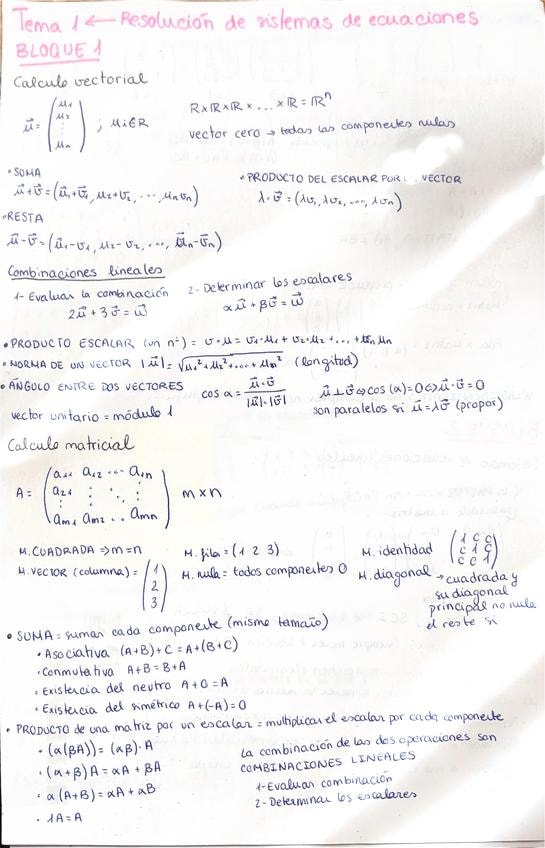 Tema 1 ← Resolución de sistemas de ecuaciones
BLOQUE 1
Calculo vectorial
u⃗ = (u₁ u₂ ⋮ uₙ) ; uᵢ∈R
R×R×R×...×R = Rⁿ
vector cero → todas las componentes nulas
• SUMA
u⃗+v⃗ = (u⃗₁+v⃗₁, u₂+v₂, ..., uₙvₙ)
• PRODUCTO DEL ESCALAR POR VECTOR
λ·v⃗ = (λv₁, λv₂, ..., λvₙ)
• RESTA
u⃗-v⃗ = (u⃗₁-v₁, u₂-v₂, ..., u⃗ₙ-v⃗ₙ)
Combinaciones lineales
1- Evaluar la combinación
2u⃗+3v⃗ = w⃗
2- Determinar los escalares
αu⃗+βv⃗ = w⃗
• PRODUCTO ESCALAR (un nº) = v·u = v₁·u₁ + v₂·u₂ + ... + vₙuₙ
• NORMA DE UN VECTOR |u⃗| = √(u₁²+u₂²+...+uₙ²) (longitud)
• ÁNGULO ENTRE DOS VECTORES
cos α = (u⃗·v⃗)/(|u⃗|·|v⃗|)
u⃗⊥v⃗ ⇔ cos(α)=0 ⇔ u⃗·v⃗=0
vector unitario = módulo 1
son paralelos si u⃗=λv⃗ (propor)
Calculo matricial
A = (a₁₁ a₁₂ ... a₁ₙ
a₂₁ ⋮ ⋱ ⋮
aₘ₁ aₘ₂ .. aₘₙ) m×n
M. CUADRADA ⇒ m=n
M. fila = (1 2 3)
M. identidad
M. VECTOR (columna) = (1 2 3)
M. nula = todos componentes 0
M. diagonal → cuadrada y
su diagonal
principal no nula
el resto si
• SUMA = sumar cada componente (mismo tamaño)
• Asociativa (A+B)+C = A+(B+C)
• Conmutativa A+B = B+A
• Existencia del neutro A+0 = A
• Existencia del simétrico A+(-A)=0
• PRODUCTO de una matriz por un escalar = multiplicar el escalar por cada componente
• (α(βA)) = (αβ)·A
• (α+β)A = αA + βA
• α(A+B) = αA + αB
• 1A = A
La combinación de las dos operaciones son
COMBINACIONES LINEALES
1- Evaluar combinación
2- Determinar los escalares